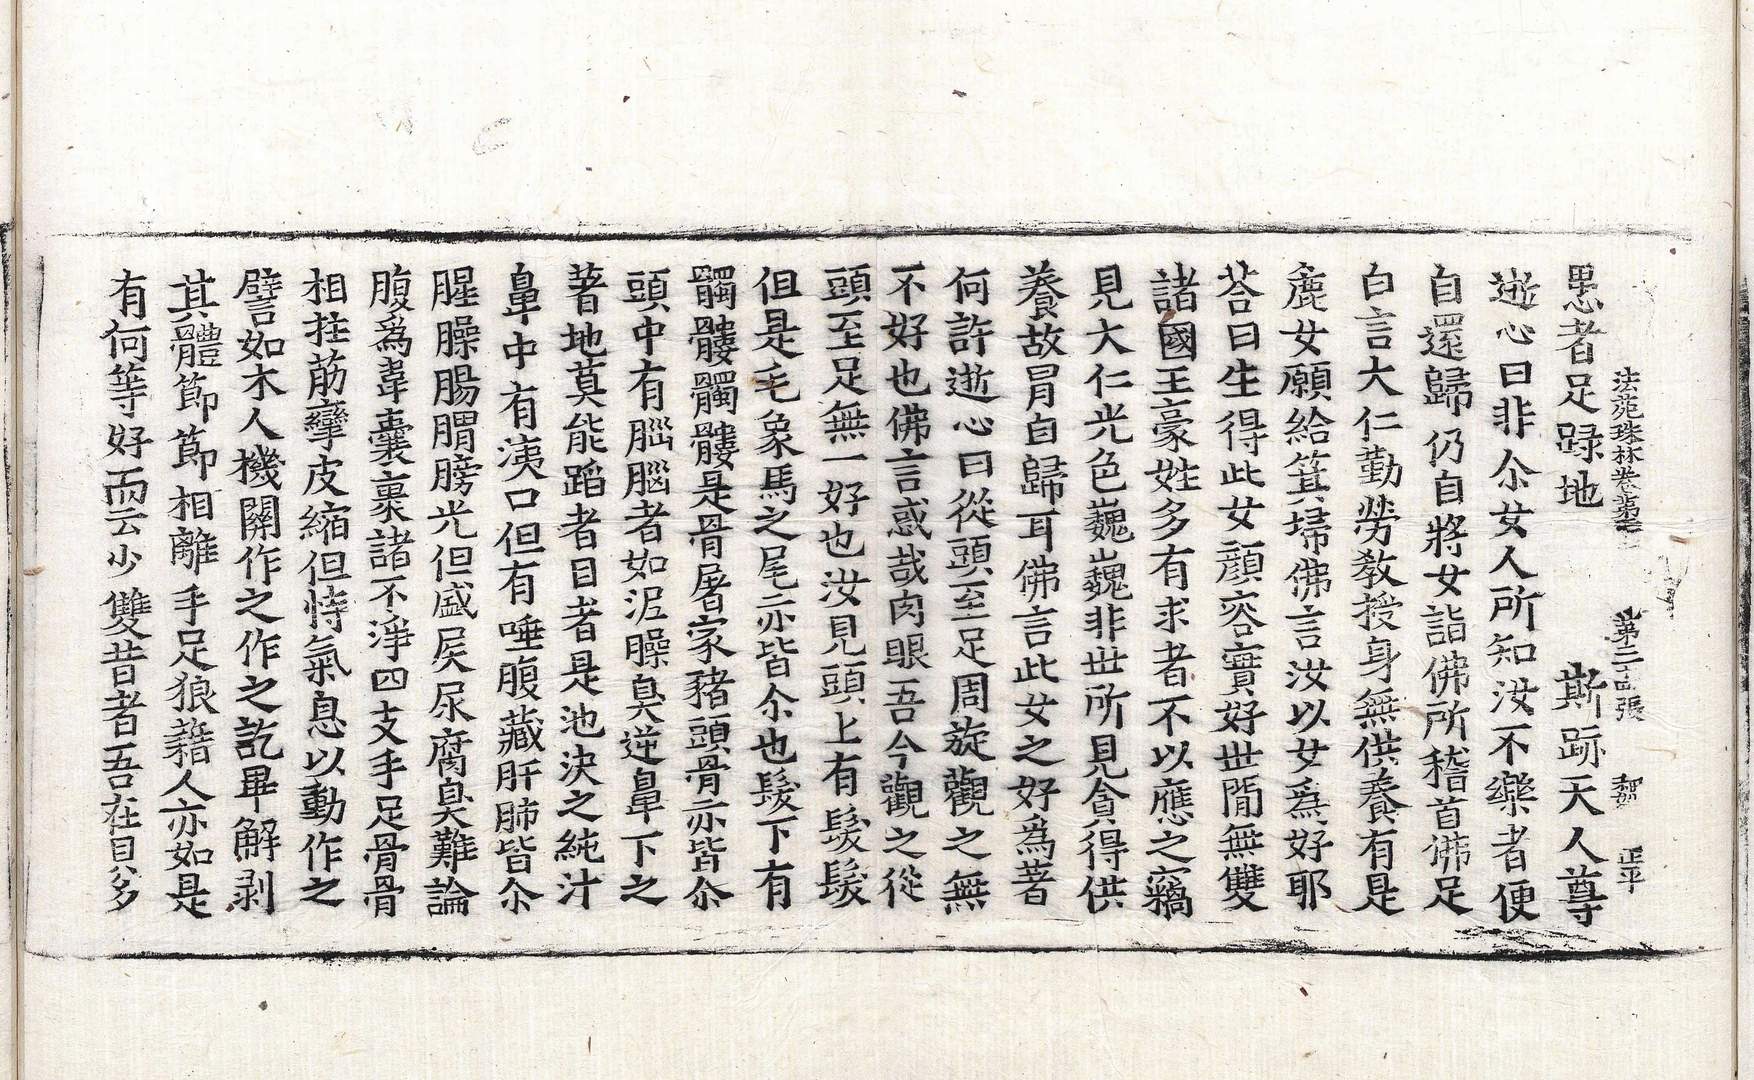 法苑珠林卷第 第二十張
愚者足踍地 斯跡天人尊
逝心曰非尒女人所知汝不樂者便
自還歸仍自將女詣佛所稽首佛足
白言大仁勤勞教授身無供養有是
麁女願給箕埽佛言汝以女爲好耶
荅曰生得此女顔容實好世閒無雙
諸國王豪姓多有求者不以應之竊
見大仁光色巍巍非世所見貪得供
養故冐自歸耳佛言此女之好爲著
何許逝心曰從頭至足周旋觀之無
不好也佛言惑哉肉眼吾今觀之從
頭至足無一好也汝見頭上有髮髮
但是毛象馬之尾亦皆尒也髮下有
髑髏髑髏是骨屠家豬頭骨亦皆尒
頭中有腦腦者如泥臊臭逆鼻下之
著地莫能蹈者目者是池決之純汁
鼻中有洟口但有唾腹藏肝肺皆尒
腥臊腸胃膀光但盛屎尿腐臭難論
腹爲韋囊裹諸不淨四支手足骨骨
相拄筋攣皮縮但恃氣息以動作之
譬如木人機關作之作之訖畢解剥
其體節節相離手足狼藉人亦如是
有何等好而云少雙昔者吾在貝多